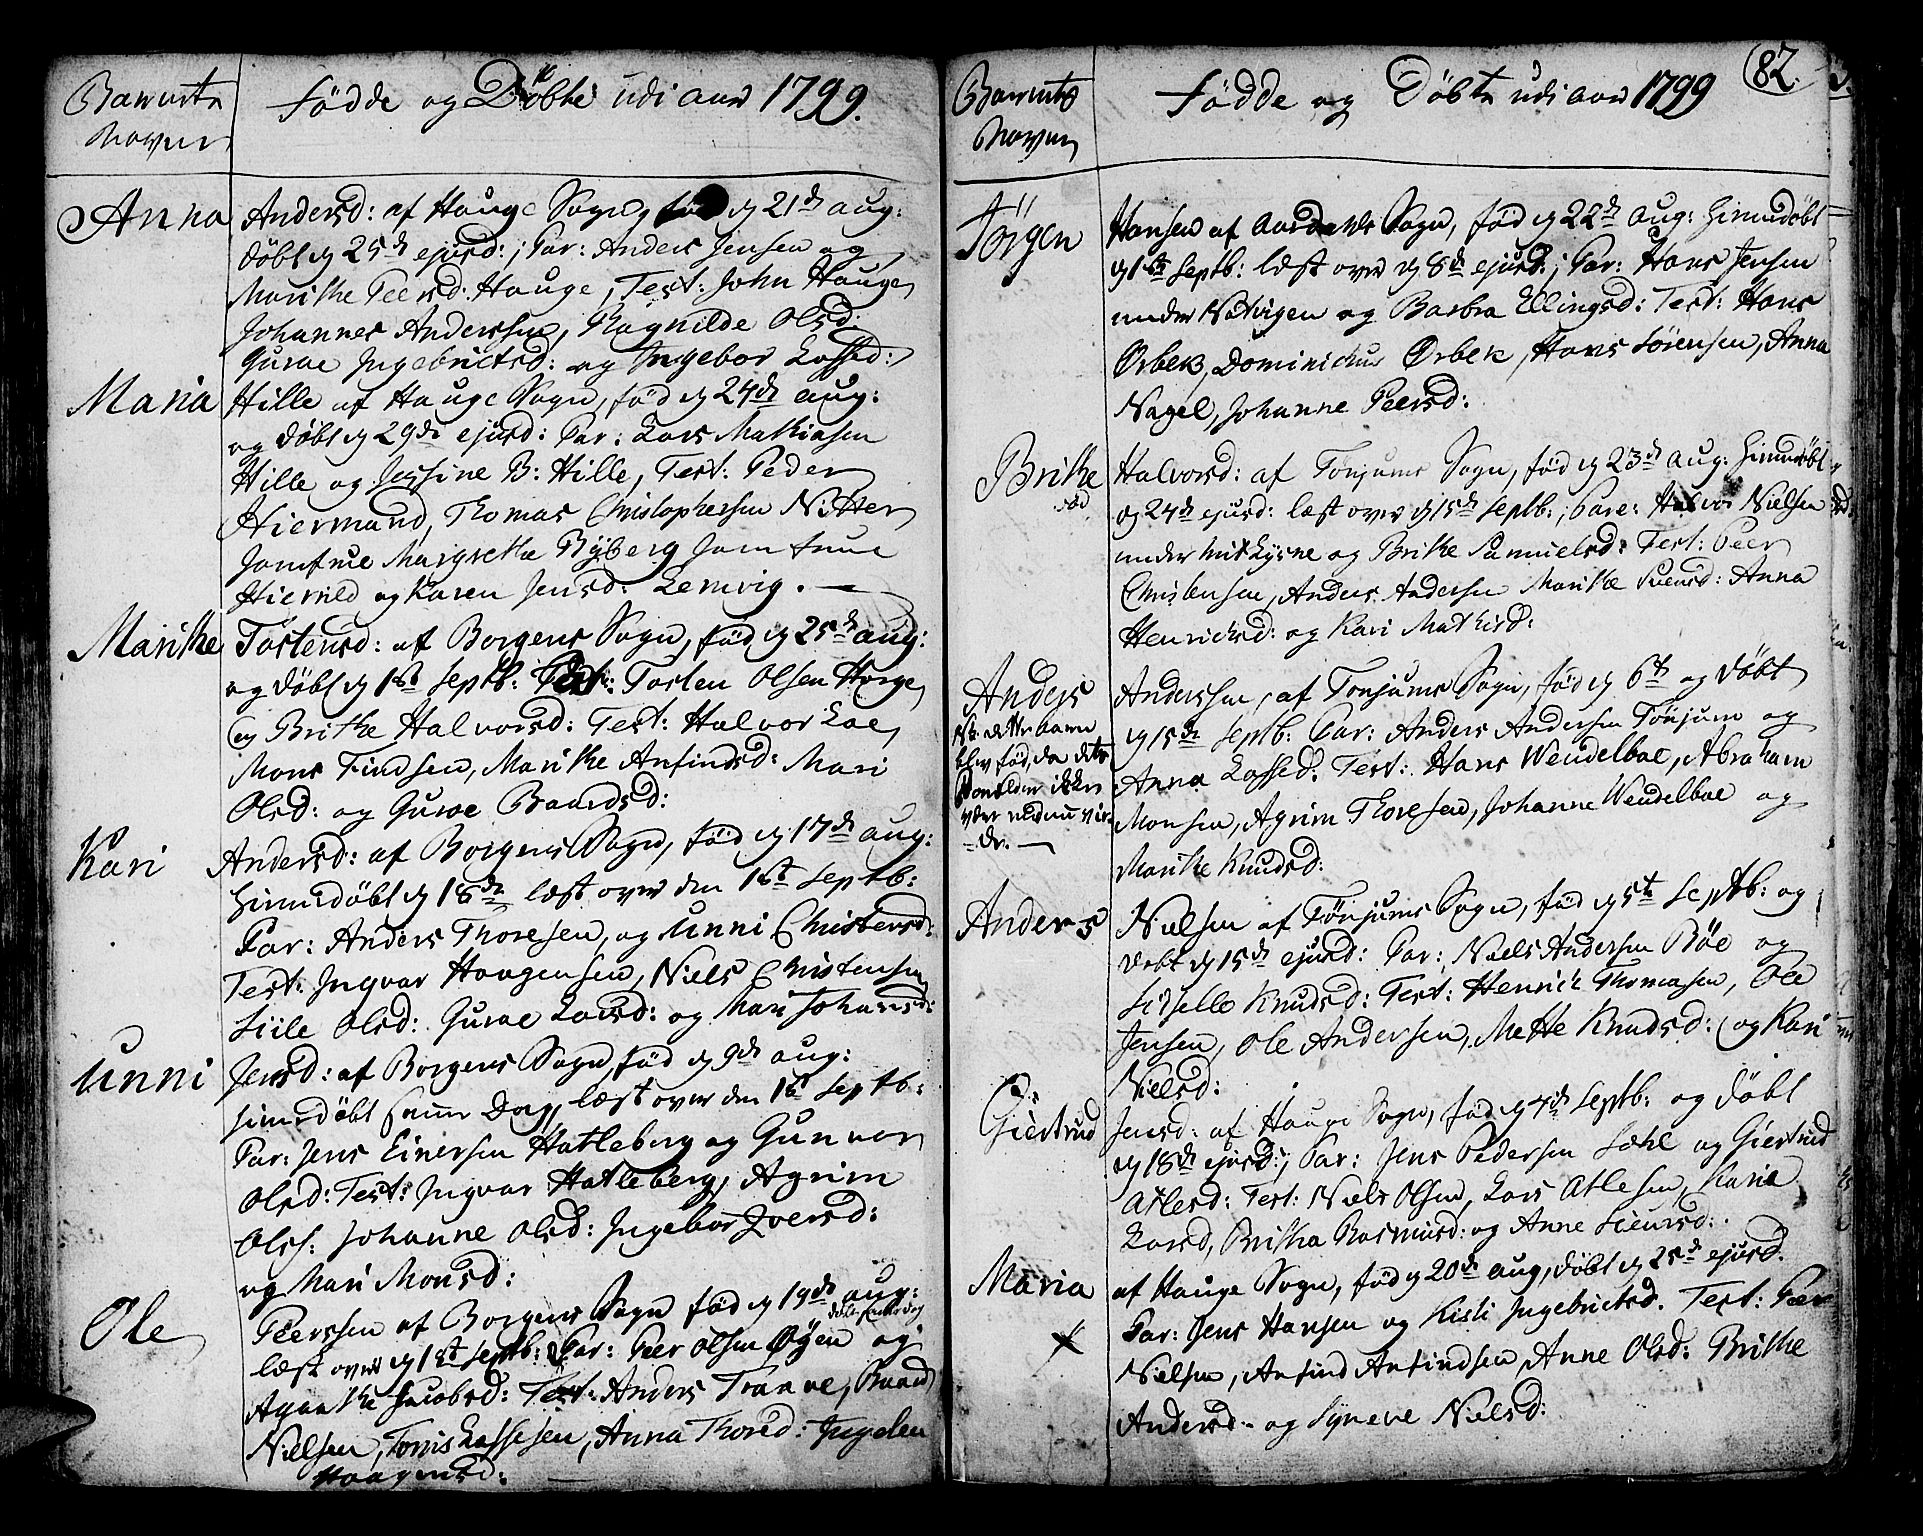 Barnets
Navn
Födde og Döbte udi aar 1799.
Anna
Andersd: af Hauge Sogn, fød d 21de aug:
döbt d 25de ejusd:; Par: Anders Jensen og
Marithe Peersd: Hauge, Test: John Hauge
Johannes Anderssen, Ragnilde Olsd:
Guroe Ingebrictsd: og Ingebor Lassed:
Maria
Hille af Hauge Sogn, fød d 24de aug:
og döbt d 29de ejusd: Par: Lars Mathiasen
Hille og Jessine B: Hille, Test: Peder
Hiermand, Thomas Christophersen Nitter
Jomfrue Margrethe Ryberg Jomfrue
Hiermed og Karen Jensd: Lemvig. —
Marithe
Tostensd: af Borgens Sogn, fød d 25de aug:
og döbt d 1st Septb: Tosten Olsen Hauge
og Brithe Halvorsd: Test: Halvor Loe,
Mons Findsen, Marithe Anfindsd: Mari
Olsd: og Guroe Baardsd:
Kari
Andersd: af Borgens Sogn, fød d 17de aug:
hiemedöbt d 18de læst over den 1st Septb:
Par: Anders Thoresen, og Unni Christensd:
Test: Ingvar Haagensen, Niels Christensen
Siile Olsd: Guroe Larsd: og Mari Johansd:
Unni
Jensd: af Borgens Sogn, fød d 9de aug:
hiemedöbt samme Dag, læst over den 1st Septb:
Par: Jens Einersen Hatleberg og Gunnor
Olsd: Test: Ingvar Hatleberg, Agrim
Olss: Johanne Olsd: Ingebor Iversd:
og Mari Monsd:
Ole
Peerssen af Borgens Sogn fød d 19de aug:
döbt samme Dag
læst over d 1st Septb: Par: Peer Olsen Øyen og
Aganthe Jacobsd: Test: Anders Trønne, Baard
Nielsen, Tønis Lassesen, Anna Thored: Ingelen
Haagensd: —
Barnets
Navn
Födde og Döbte udi aar 1799
82.
Jörgen
Hansen af Aardals Sogn, fød d 22de aug: hiemedöbt
d 1st Septb: læst over d 8de ejusd:; Par: Hans Jensen
under Natvigen og Barbra Ellingsd: Test: Hans
Ørbek, Dominichus Ørbek, Hans Sörensen, Anna
Nagel, Johanne Peersd:
Brithe
Halvorsd: af Tønjums Sogn, fød d 23de aug: hiemedöbt
d 24de ejusd: læst over d 15de Septb:; Pare: Halvor Nielsen
under Lysne og Brithe Samuelsd: Test: Peer
Christensen, Anders Andersen Marithe Svensd: Anna
Henrichsd: og Kari Mathisd:
Anders
Nb: dette barn
blev fød, da dets
Forældre ikke
vare endnu vie-
de. —
Anderssen, af Tønjums Sogn, fød d 6te og döbt
d 15de Septb: Par: Anders Andersen Tønjum og
Anna Lassed: Test: Hans Wendelboe, Abraham
Monsen, Agrim Thoresen, Johanne Wendelboe og
Marithe Knudsd:
Anders
Nielsen af Tønjums Sogn, fød d 5te Septb: og
döbt d 15de ejusd: Par: Niels Andersen Böe og
Sidselle Knudsd: Test: Henrich Thomassen, Ole
Jensen, Ole Andersen, Mette Knudsd: og Kari
Nielsd:
Giertrud
Jensd: af Hauge Sogn, fød d 7de Septb: og döbt
d 18de ejusd:; Par: Jens Pedersen Sæhl og Giertrud
Atlesd: Test: Niels Olsen, Lars Atlesen, Karie
Larsd, Britha Rasmusd: og Anne Siursd:
Maria
af Hauge Sogn, fød d 20de aug, döbt d 25de ejusd.
Par: Jens Hansen og Kisti Ingebrictsd. Test: Peer
Nielsen, Anfind Anfindsen, Anne Olsd: Brithe
Andersd: og Syneve Nielsd: